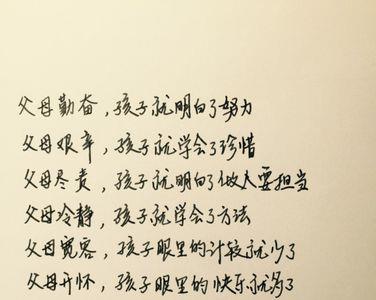 父母勤奋，孩子就明白了努力
父母艰辛，孩子就学会了珍惜
父母尽责，孩子就明白了做人要担当
父母冷静，孩子就学会了方法
父母宽容，孩子眼里的计较就少了
父母开怀，孩子眼里的快乐就多了